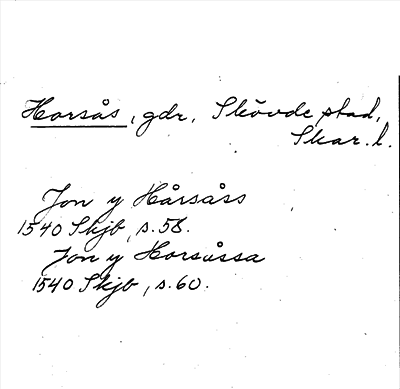 Horsås, gdr, Skövde stad,
Skar. l.
Jon y Hårsåss
1540 Skjb, s. 58.
Jon y Horsåssa
1540 Skjb, s. 60.